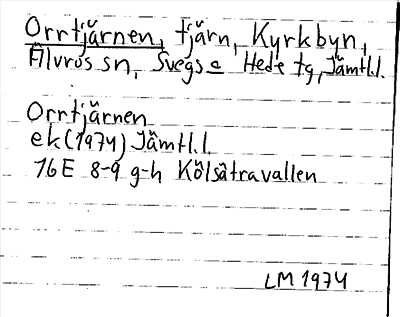 Orrtjärnen, tjärn, Kyrkbyn,
Älvros sn, Svegs o Hede tg, Jämtl.l.
Orrtjärnen
ek (1974) Jämtl.l.
16E 8-9 g-h Kölsätravallen
LM 1974